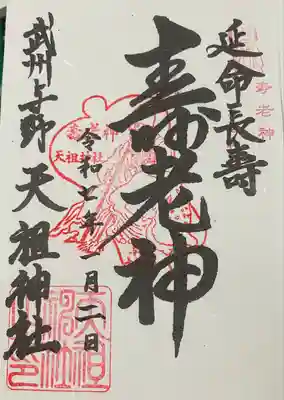 延命長寿
寿老神
壽老神
壽老神
天祖神社
令和七年一月二日
武州上野
天祖神社
天祖
神社